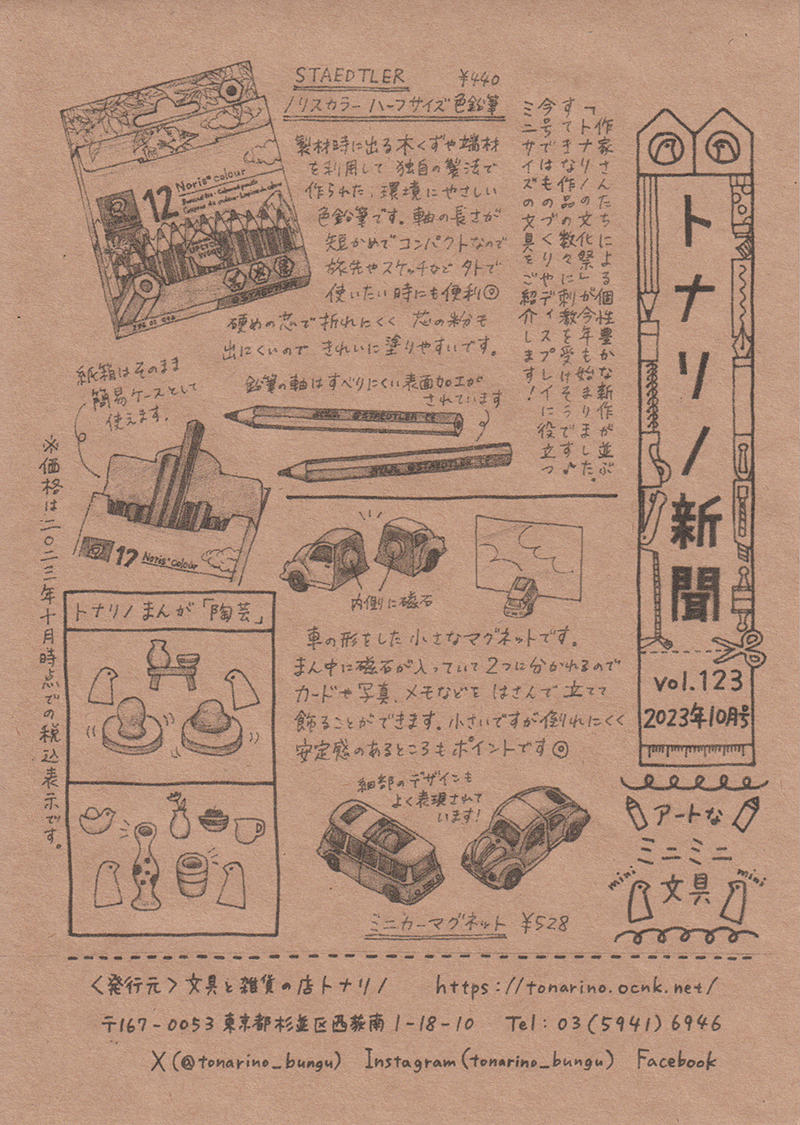 トナリノ新聞
vol.123
2023年10月号
アートな
ミニミニ
文具
mini
mini
作家さんたちによる個性豊かな新作が並ぶ
「トナリノ文化祭」が今年も始まりました。
すてきな作品の数々に刺激を受けそうです♪
今号ではものづくりやディスプレイに役立つ
ミニサイズの文具をご紹介します！
STAEDTLER ¥440
ノリスカラー ハーフサイズ色鉛筆
製材時に出る木くずや端材
を利用して 独自の製法で
作られた、環境にやさしい
色鉛筆です。軸の長さが
短かめでコンパクトなので
旅先やスケッチなど外で
使いたい時にも便利◎
硬めの芯で折れにくく 芯の粉も
出にくいので きれいに塗りやすいです。
12 Noris colour
STAEDTLER
鉛筆の軸はすべりにくい表面加工が
されています
STAEDTLER CE
STAEDTLER CE
紙箱はそのまま
簡易ケースとして
使えます。
12 Noris colour
内側に磁石
車の形をした小さなマグネットです。
まん中に磁石が入っていて2つに分かれるので
カードや写真、メモなどを はさんで立てて
飾ることができます。小さいですが倒れにくく
安定感のあるところもポイントです◎
細部のデザインも
よく表現されて
います！
ミニカーマグネット ¥528
トナリノまんが「陶芸」
※価格は二〇二三年十月時点での税込表示です。
〈発行元〉文具と雑貨の店トナリノ https://tonarino.ocnk.net/
〒167-0053 東京都杉並区西荻南1-18-10 Tel: 03(5941)6946
X(@tonarino_bungu) Instagram(tonarino_bungu) Facebook